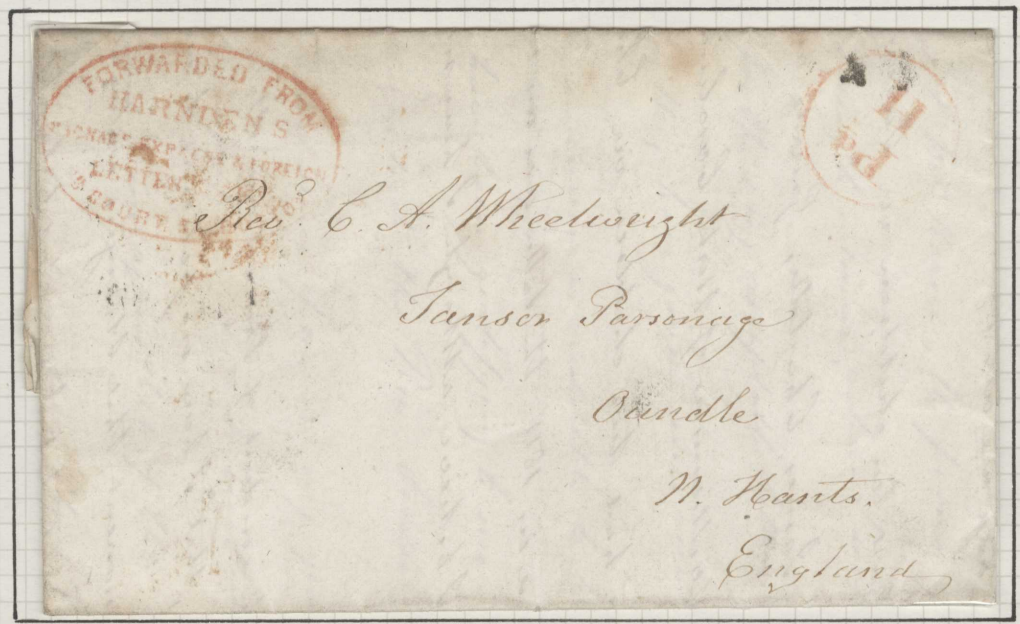 FORWARDED FROM
HARNDEN'S
PACKAGE EXPRESS & FOREIGN
LETTER
8 COURT
11
Pd
Revd. C. A. Wheelwright
Tansor Parsonage
Oundle
N. Hants.
England